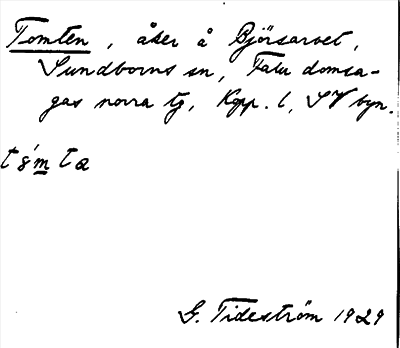 Tomten, åker å Björsarvet,
Sundborns sn, Falu domsa-
gas norra tg, Kopp. l, SV byn.
G. Tideström 1929